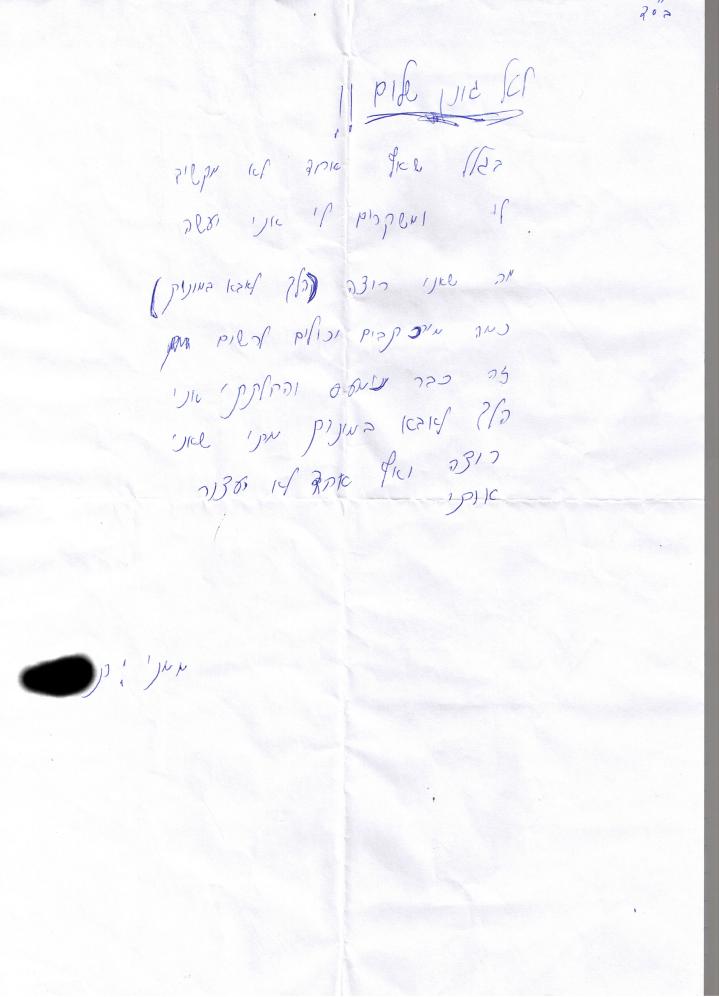 בס"ד
לאל גונן שלום !!
בגלל שאף אחד לא מקשיב
לי ומשקרים לי אני יעשה
מה שאני רוצה (הלך לאבא במונית)
כמה מירקבים וכולים להשים
זה כבר נמעס והחלתתי אני
הלך לאבא במונית מתי שאני
רוצה ואף אחד לא יעצור
אותי
ממני :